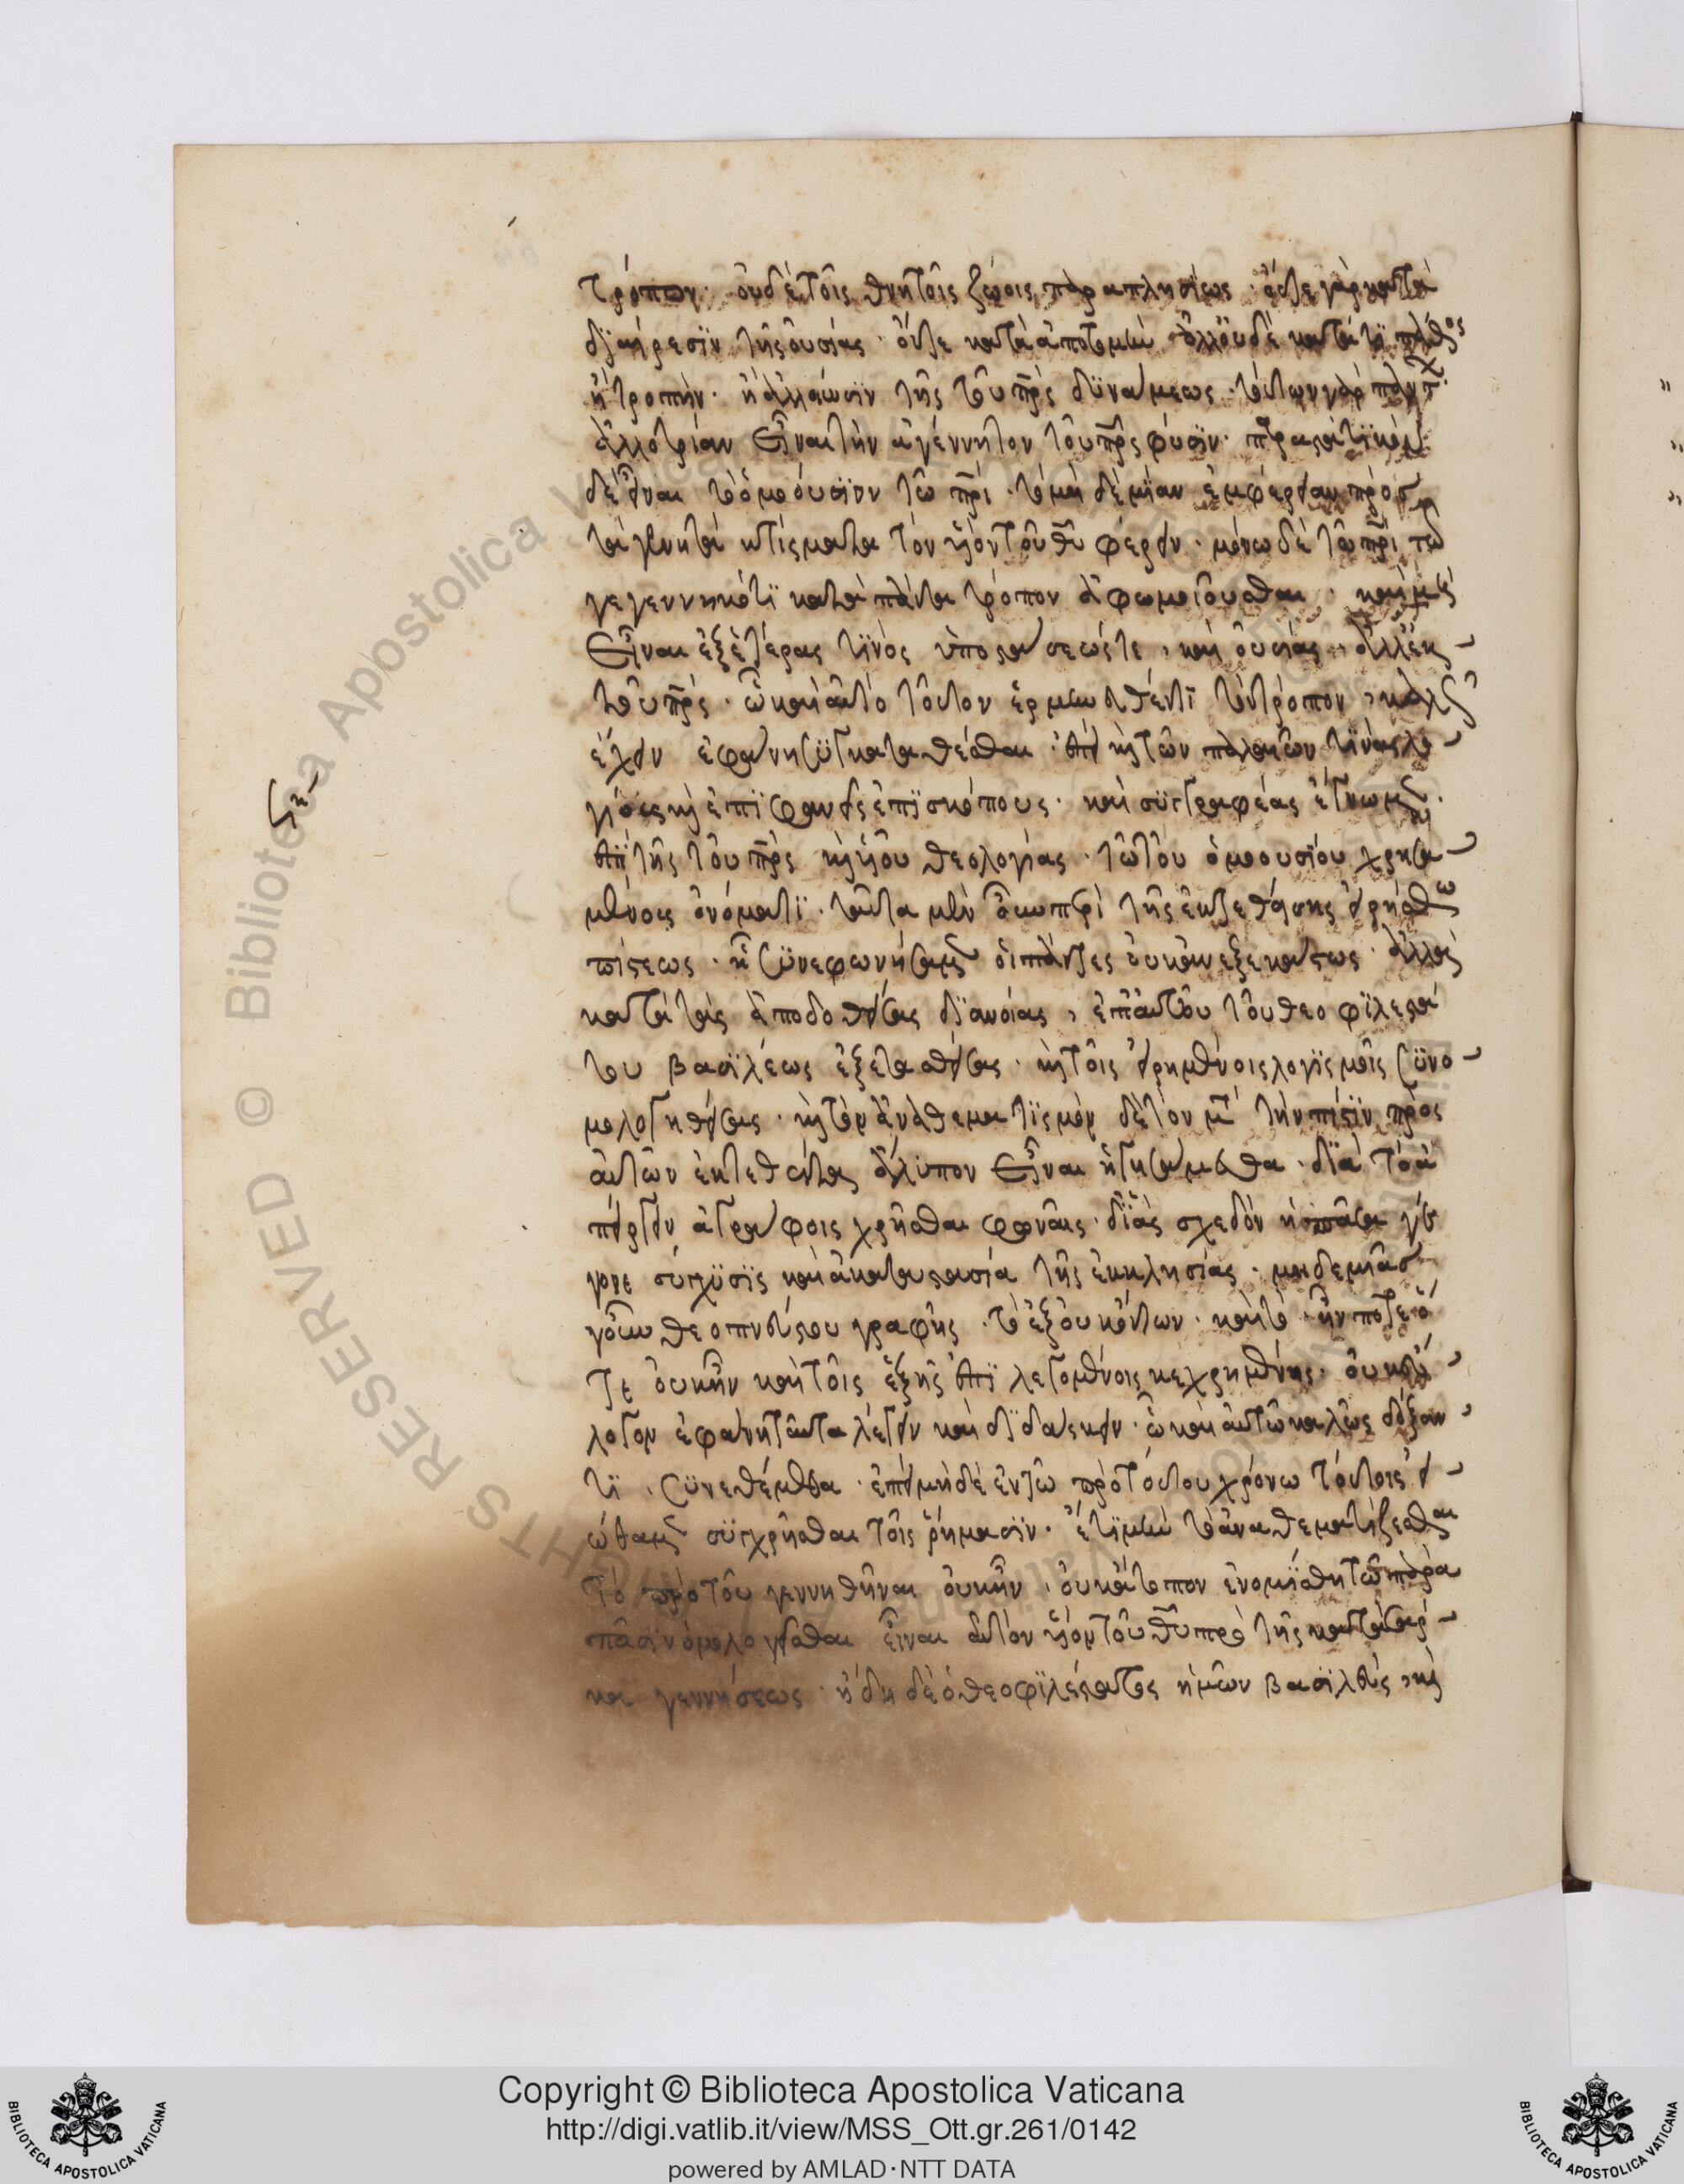 τρόπον· οὐδὲ τοῖς θνητοῖς ζώοις παραπλησίως· οὔτε γὰρ κατὰ
διαίρεσϊν τῆς οὐσίας· οὔτε κατὰ ἀποτομὴν ἀλλ' οὐδὲ κατά τι πάθος
ἢ τροπὴν· ἢ ἀλλοίωσϊν τῆς τοῦ πρς δϋνάμεως· τούτων γὰρ πάντ
ἀλλοτρίαν εἶναι τὴν ἀγέννητον τοῦ πρς φύσϊν· παραστατϊκὸν
δὲ εἶναι τὸ ὁμοούσϊον τῶ πρι· τὸ μὴ δεμίαν ἐμφέρειαν πρὸς
τὰ γενητὰ κτίσματα τὸν ϋἱὸν τοῦ θυ φέρειν· μόνω δὲ τῶ πρι τῶ
γεγεννηκότϊ κατὰ πάντα τρόπον ἀφωμοιοῦσθαι· καὶ μὴ
εἶναι ἐξ ἑτέρας τϊνὸς ὑποστάσεώς τε, καὶ οὐσίας, ἀλλ' ἐκ
τοῦ πρς· ὧ καὶ αὐτὸ τοῦτον ἑρμηνευθέντϊ τὸν τρόπον, καλῶς
ἔχειν ἐφάνη συγκαταθέσθαι· ἐπεὶ κ τῶν παλαιῶν τϊνὰς λο
γίους κ ἐπϊφανεῖς ἐπϊσκόπους· καὶ συγγραφέας ἔγνωμεν·
ἐπὶ τῆς τοῦ πρς κ ϋἱοῦ θεολογίας· τῶ τοῦ ὁμοουσίου χρησα
μένους ὀνόματϊ· ταῦτα μὲν οὖν περὶ τῆς ἐκτεθείσης εἰρήσθω
πίστεως· ᾗ συνεφωνήσαμεν οἱ πάντες οὐκ ἀνεξετάστως· ἀλλὰ
κατὰ τὰς ἀποδοθείσας δϊανοίας, ἐπ' αὐτοῦ τοῦ θεοφϊλεστά
του βασϊλέως ἐξετασθείσας· κ τοῖς εἰρημένοις λογϊσμοῖς συνο
μολογηθείσας· κ τὸν ἀναθεματϊσμὸν δὲ τὸν μτ τὴν πίστϊν πρὸς
αὐτῶν ἐκτεθέντα ἄλυπον εἶναι ἡγησάμεθα· δϊὰ τὸ ἀ
πείργειν ἀγράφοις χρῆσθαι φωναῖς· δϊ' ἃς σχεδὸν ἡ πᾶσα γέ
γονε σύγχυσϊς καὶ ἀκαταστασία τῆς ἐκκλησίας· μηδεμιᾶς
γοῦν θεοπνεύστου γραφῆς· τὸ ἐξ οὐκ ὄντων· καὶ τὸ ἦν ποτὲ ὅ
τε οὐκ ἦν καὶ τοῖς ἑξῆς ἐπϊλεγομένοις κεχρημένης· οὐκ εὔ
λογον ἐφάνη ταῦτα λέγειν καὶ δϊδάσκειν· ὧ καὶ αὐτῶ καλῶς δόξαν
τϊ· συνεθέμεθα· ἐπεὶ μὴ δὲ ἐν τῶ πρὸ τούτου χρόνω τούτοις εἰ
ώθαμεν συγχρῆσθαι τοῖς ῥήμασϊν· ἔτϊ μὴν τὸ ἀναθεματίζεσθαι
τὸ πρὸ τοῦ γεννηθῆναι οὐκ ἦν· οὐκ ἄτοπον ἐνομίσθη τῶ παρὰ
πᾶσϊν ὁμολογεῖσθαι εἶναι αὐτὸν ϋἱὸν τοῦ θυ πρὸ τῆς κατὰ σάρ
κα γεννήσεως· ἤδη δὲ ὁ θεοφϊλέστατος ἡμῶν βασϊλεὺς, κ
Copyright © Biblioteca Apostolica Vaticana
http://digi.vatlib.it/view/MSS_Ott.gr.261/0142
powered by AMLAD·NTT DATA